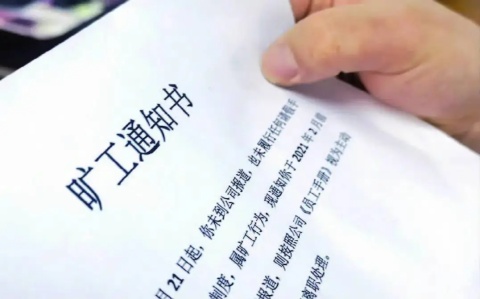 旷工通知书
月21日起，你未到公司报道，也未履行任何请假手
制度，属旷工行为，现通知你于2021年2月前
报道，则按照公司《员工手册》视为主动
离职处理。